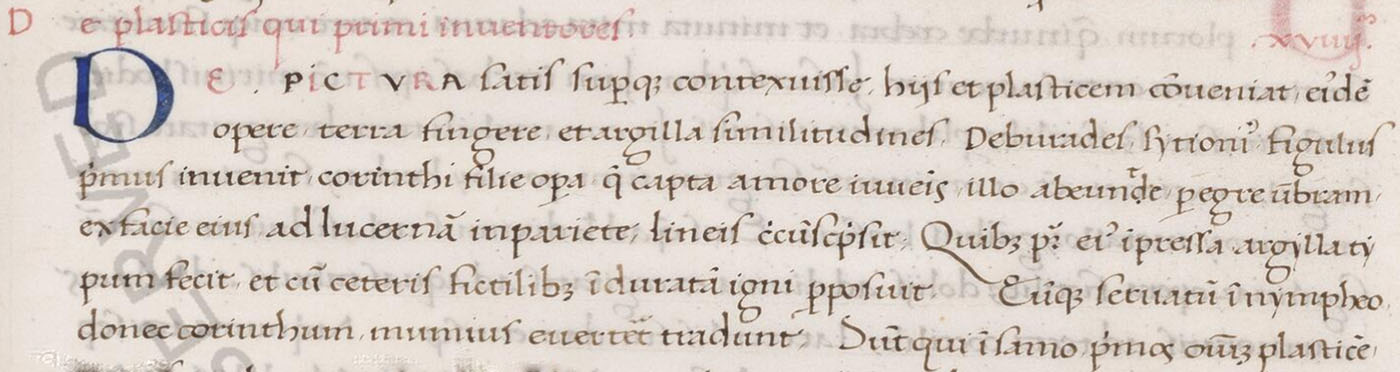 De plasticis qui primi inventores .xviiij.
DE . PICTVRA satis supꝗ; contexuisse, hijs et plasticem cōveniat, eiꝰdē
opere, terra fingere, et argilla similitudines. Deburades, sytioniꝰ figulus
pͥmus invenit, corinthi filie opa q̄ capta amore iuveis, illo abeunde, pegre ūbram,
ex facie eius ad lucernā in pariete, lineis c̄cūscͥpsit, Quibꝫ pr̄ eiꝰ īpressa argylla ty
pum fecit, et cū ceteris fictilibꝫ īduratā igni pposuit. Eūꝗ; servatū ī nympheo,
donec corinthum, mumius everteret tradunt, Sūt qui ī samo, pͥmos oīuꝫ plasticē,